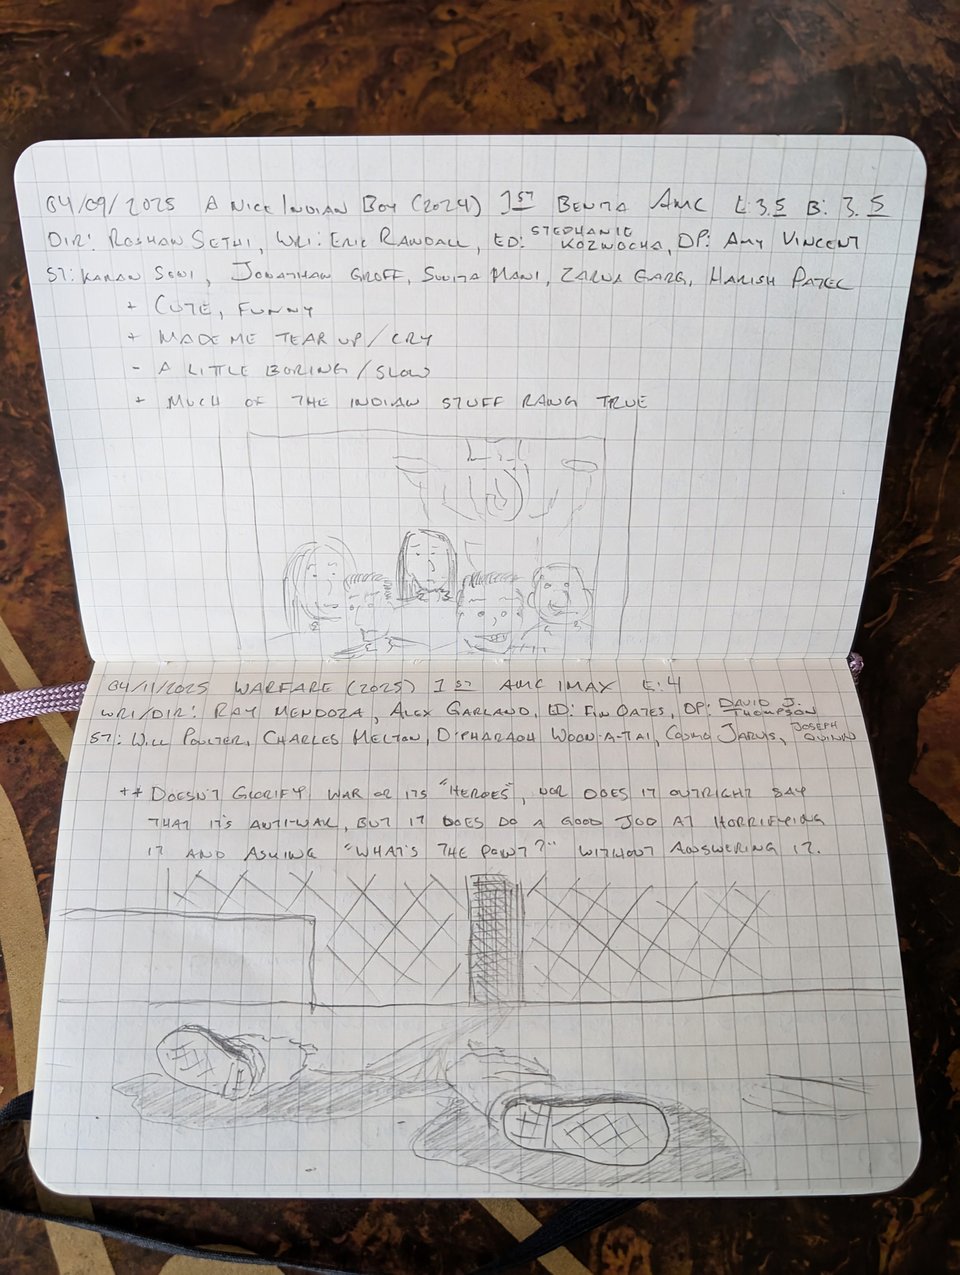 04/09/2025 A NICE INDIAN BOY (2024) 1ST BENITA AMC E: 3.5 B: 3.5
DIR: ROSHAN SETHI, WRI: ERIC RANDALL, ED: STEPHANIE KOZWOCHA, DP: AMY VINCENT
ST: KARAN SONI, JONATHAN GROFF, SUNITA MANI, ZARNA GARG, HARISH PATEL
+ CUTE, FUNNY
+ MADE ME TEAR UP/CRY
- A LITTLE BORING/SLOW
+ MUCH OF THE INDIAN STUFF RANG TRUE
04/11/2025 WARFARE (2025) 1ST AMC IMAX E: 4
WRI/DIR: RAY MENDOZA, ALEX GARLAND, ED: FIN OATES, DP: DAVID J. THOMPSON
ST: WILL POULTER, CHARLES MELTON, D'PHARAOH WOON-A-TAI, COSMO JARVIS, JOSEPH QUINN
++ DOESN'T GLORIFY WAR OR ITS "HEROES", NOR DOES IT OUTRIGHT SAY
THAT IT'S ANTI-WAR, BUT IT DOES DO A GOOD JOB AT HORRIFYING
IT AND ASKING "WHAT'S THE POINT?" WITHOUT ANSWERING IT.